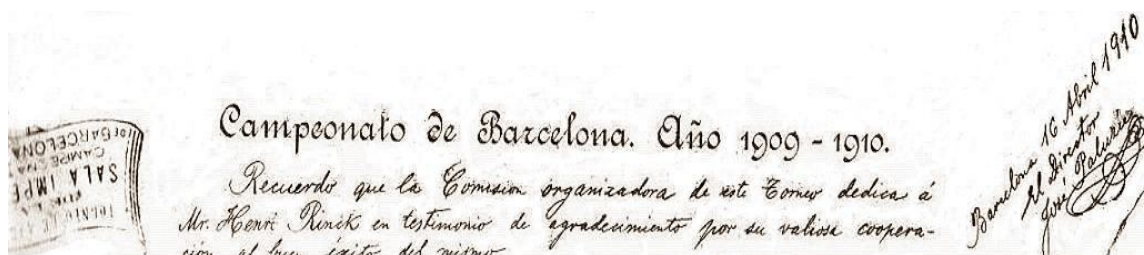 Campeonato de Barcelona. Año 1909 - 1910.
Recuerdo que la Comision organizadora de este Torneo dedica á
Mr. Henri Rinck en testimonio de agradecimiento por su valiosa coopera-
ción al buen éxito del mismo
Barcelona 16 Abril 1910
El Director
José Paluzíe
BARCELONA
SALA IMPE